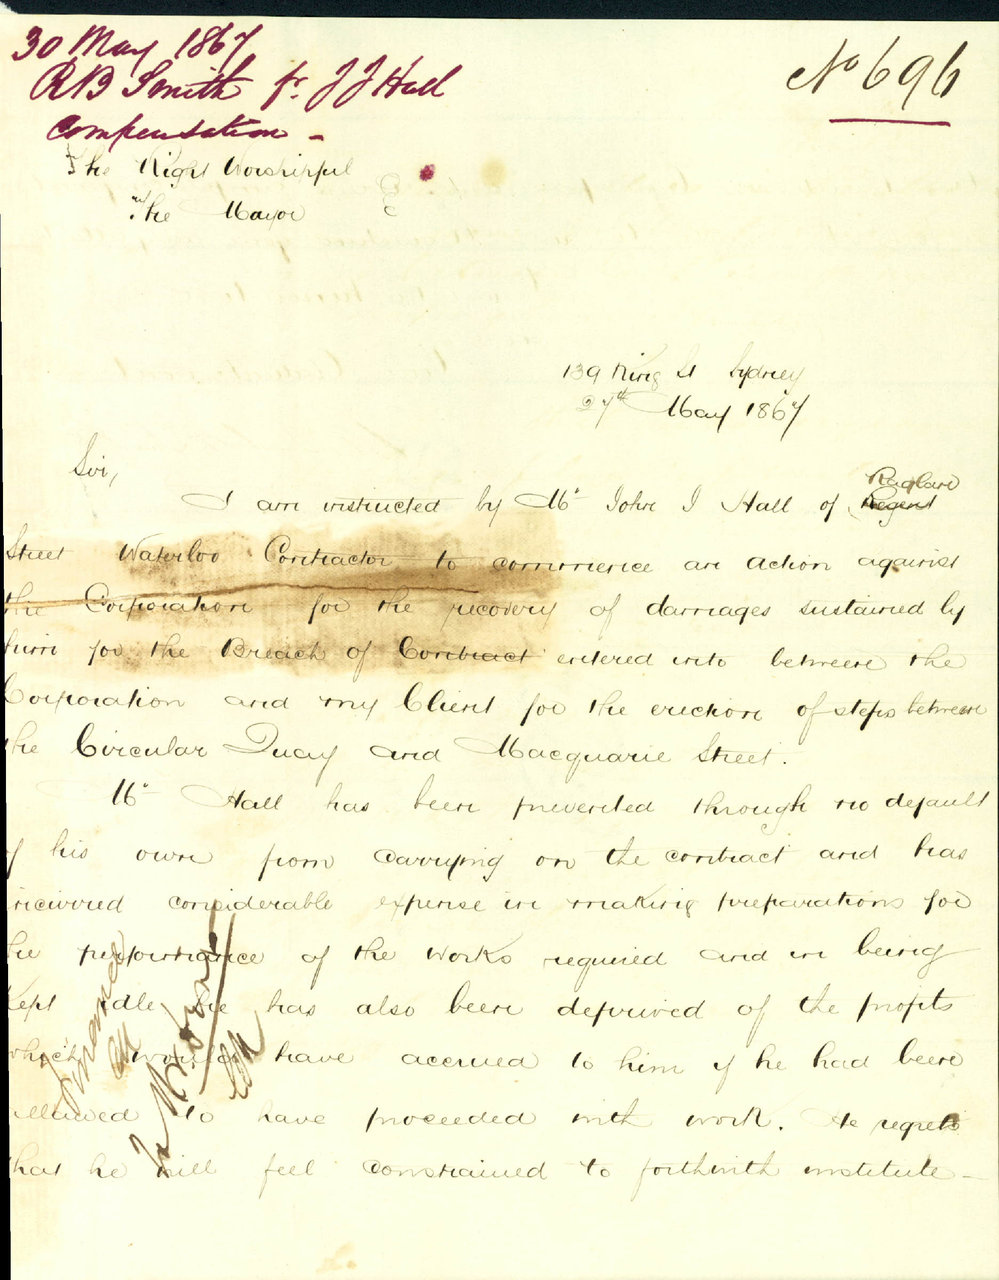 30 May 1867
RB Smith fr. J J Hall
Compensation -
No 696
The Right Worshipful
The Mayor
139 King St Sydney
27th May 1867
Sir,
I am instructed by Mr John J Hall of Raglan
Street Waterloo Contractor to commence an action against
the Corporation for the recovery of damages sustained by
him for the Breach of Contract entered into between the
Corporation and my Client for the erection of steps between
the Circular Quay and Macquarie Street.
Mr Hall has been prevented through no default
of his own from carrying on the contract and has
incurred considerable expense in making preparations for
the performance of the works required and in being
Kept idle he has also been deprived of the profits
which would have accrued to him if he had been
allowed to have proceeded with work. He regrets
that he will feel constrained to forthwith institute -
Finance